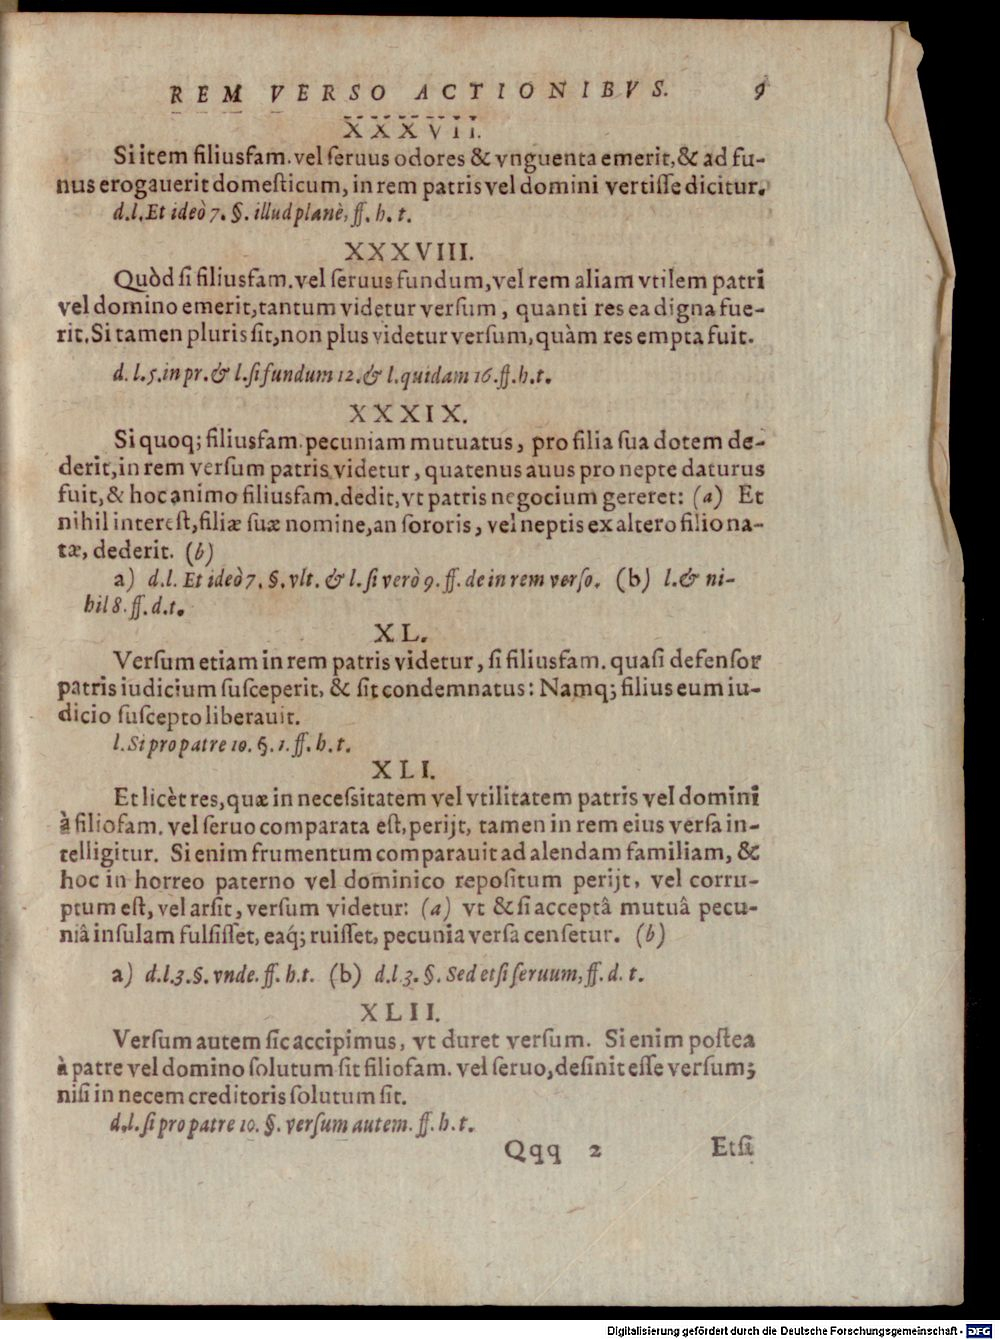 REM VERSO ACTIONIBVS. 9
XXXVII.
Si item filiusfam. vel ſeruus odores & vnguenta emerit, & ad fu-
nus erogauerit domeſticum, in rem patris vel domini vertiſſe dicitur.
d.l. Et ideò 7. §. illud planè, ff. h. t.
XXXVIII.
Quòd ſi filiusfam. vel ſeruus fundum, vel rem aliam vtilem patri
vel domino emerit, tantum videtur verſum, quanti res ea digna fue-
rit. Si tamen pluris ſit, non plus videtur verſum, quàm res empta fuit.
d. l. 5. in pr. & l. ſi fundum 12. & l. quidam 16. ff. h. t.
XXXIX.
Si quoq; filiusfam. pecuniam mutuatus, pro filia ſua dotem de-
derit, in rem verſum patris videtur, quatenus auus pro nepte daturus
fuit, & hoc animo filiusfam. dedit, vt patris negocium gereret: (a) Et
nihil intereſt, filiæ ſuæ nomine, an ſororis, vel neptis ex altero filio na-
tæ, dederit. (b)
a) d.l. Et ideò 7. §. vlt. & l. ſi verò 9. ff. de in rem verſo. (b) l. & ni-
hil 8. ff. d. t.
XL.
Verſum etiam in rem patris videtur, ſi filiusfam. quaſi defenſor
patris iudicium ſuſceperit, & ſit condemnatus: Namq; filius eum iu-
dicio ſuſcepto liberauit.
l. Si pro patre 10. §. 1. ff. h. t.
XLI.
Et licèt res, quæ in neceſsitatem vel vtilitatem patris vel domini
à filiofam. vel ſeruo comparata eſt, perijt, tamen in rem eius verſa in-
telligitur. Si enim frumentum comparauit ad alendam familiam, &
hoc in horreo paterno vel dominico repoſitum perijt, vel corru-
ptum eſt, vel arſit, verſum videtur: (a) vt & ſi acceptâ mutuâ pecu-
niâ inſulam fulſiſſet, eaq́; ruiſſet, pecunia verſa cenſetur. (b)
a) d.l. 3. §. vnde. ff. h. t. (b) d.l. 3. §. Sed et ſi ſeruum, ff. d. t.
XLII.
Verſum autem ſic accipimus, vt duret verſum. Si enim poſtea
à patre vel domino ſolutum ſit filiofam. vel ſeruo, deſinit eſſe verſum;
niſi in necem creditoris ſolutum ſit.
d. l. ſi pro patre 10. §. verſum autem. ff. h. t.
Qqq 2 Etſi
Digitalisierung gefördert durch die Deutsche Forschungsgemeinschaft - DFG